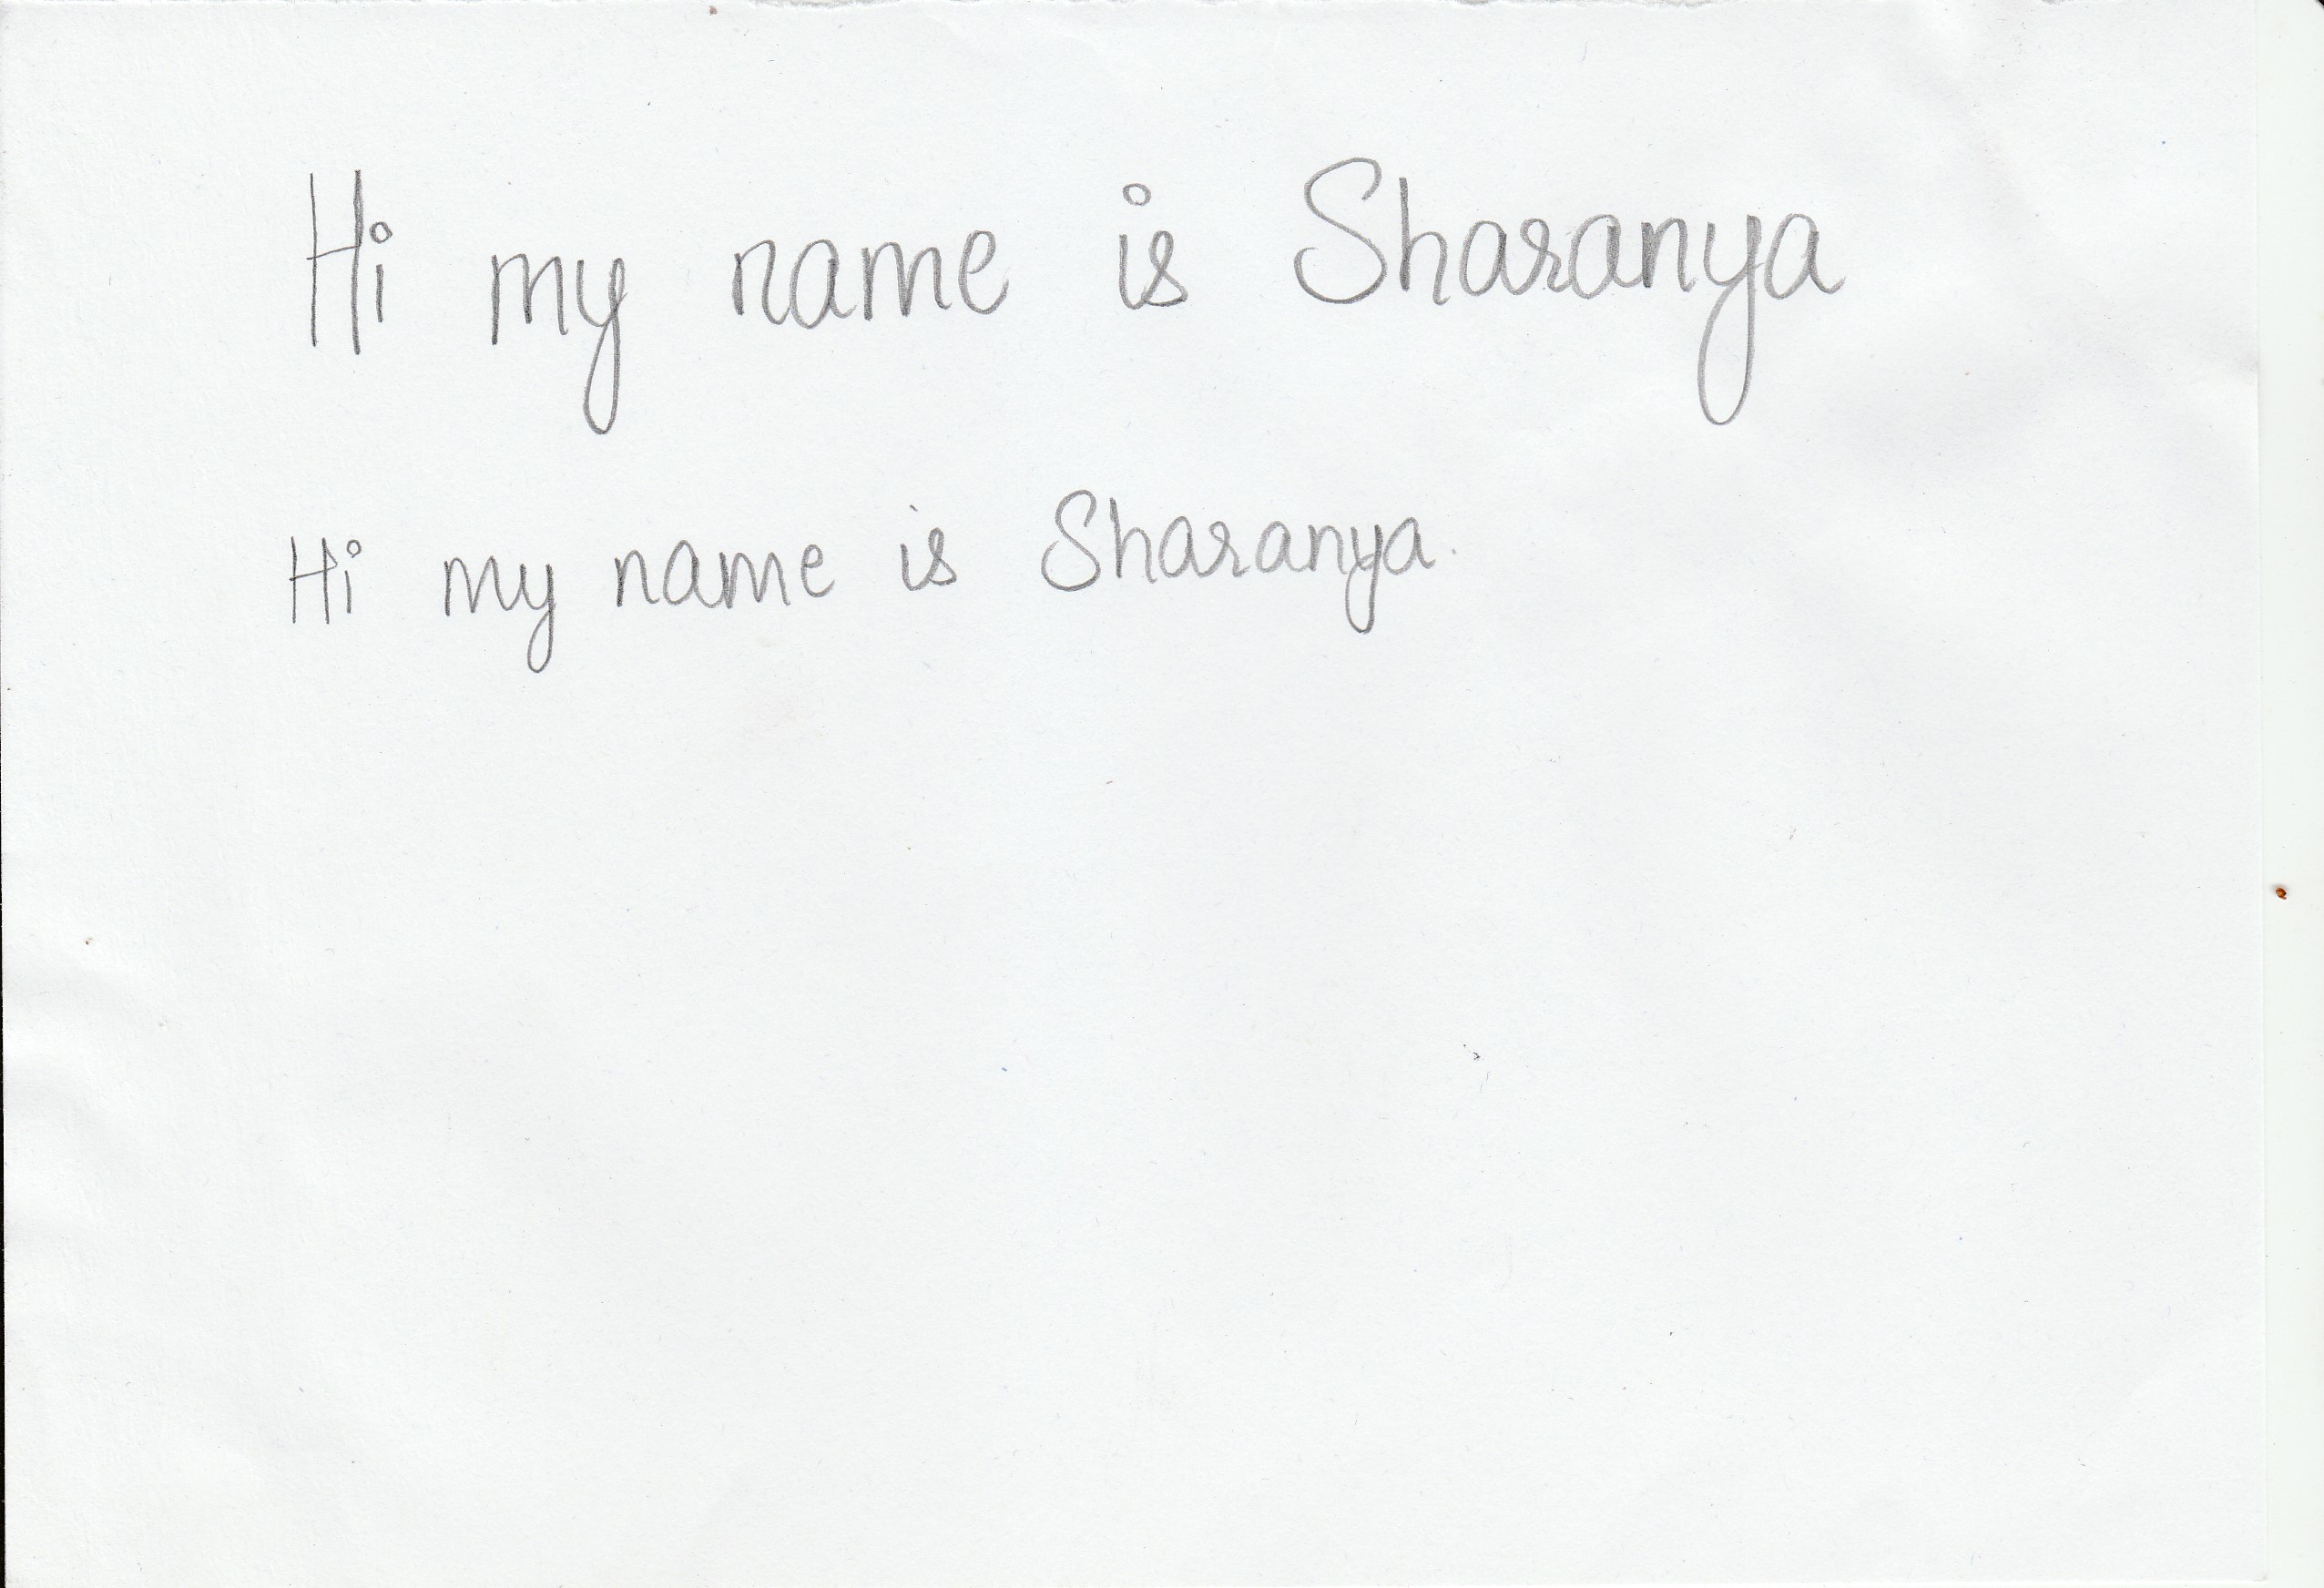 Hi my name is Sharanya
Hi my name is Sharanya.